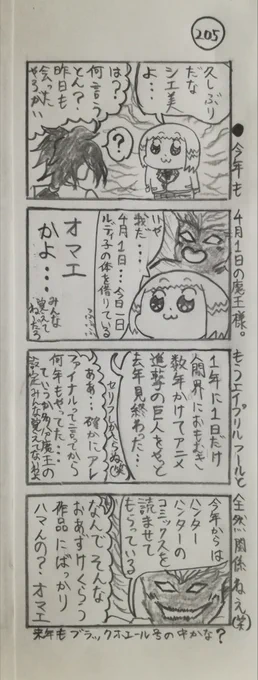 205
●今年も4月1日の魔王様。もうエイプリルフールと全然関係ねえ(笑)
久しぶり
だな
シエ美
よ…
は?
何言う
とん?
昨日も
会った
やろがい
?
いや
我だ…
4月1日…今日一日
ルディ子の体を借りている
オマエ
かよ…
みんな
覚えて
ねえだろ
1年に1日だけ
人間界におもむき
数年かけてアニメ
進撃の巨人をやっと
去年見終わった…
セリフしからね(笑)
ああ…確かにアレ
ファイナルって言ってから
何年もやってた…
設定みんな覚えてないな
今年からは
ハンター
ハンターの
コミックスを
読ませて
もらっている
なんでそんな
おあずけくらう
作品にばっかり
ハマんの?オマエ
来年もブラックホエール号の中かな?